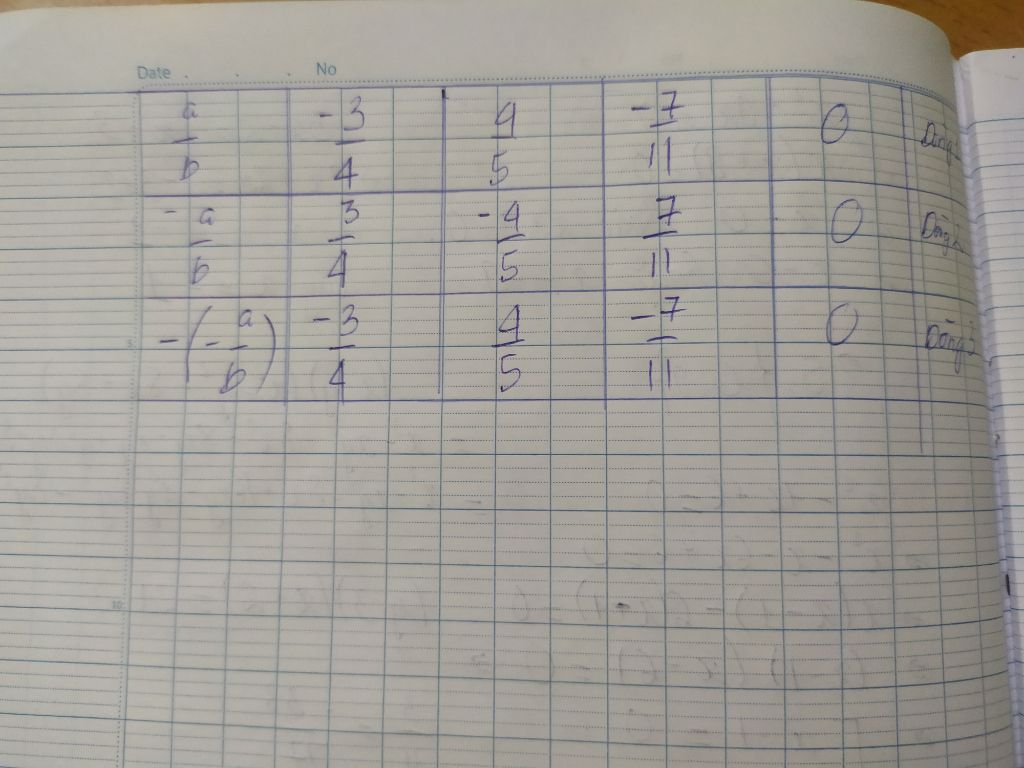 Date No
a/b -3/4 4/5 -7/11 0 Dòng
-a/b 3/4 -4/5 7/11 0 Dòng 2
-(-a/b) -3/4 4/5 -7/11 0 Dòng 3
5
10